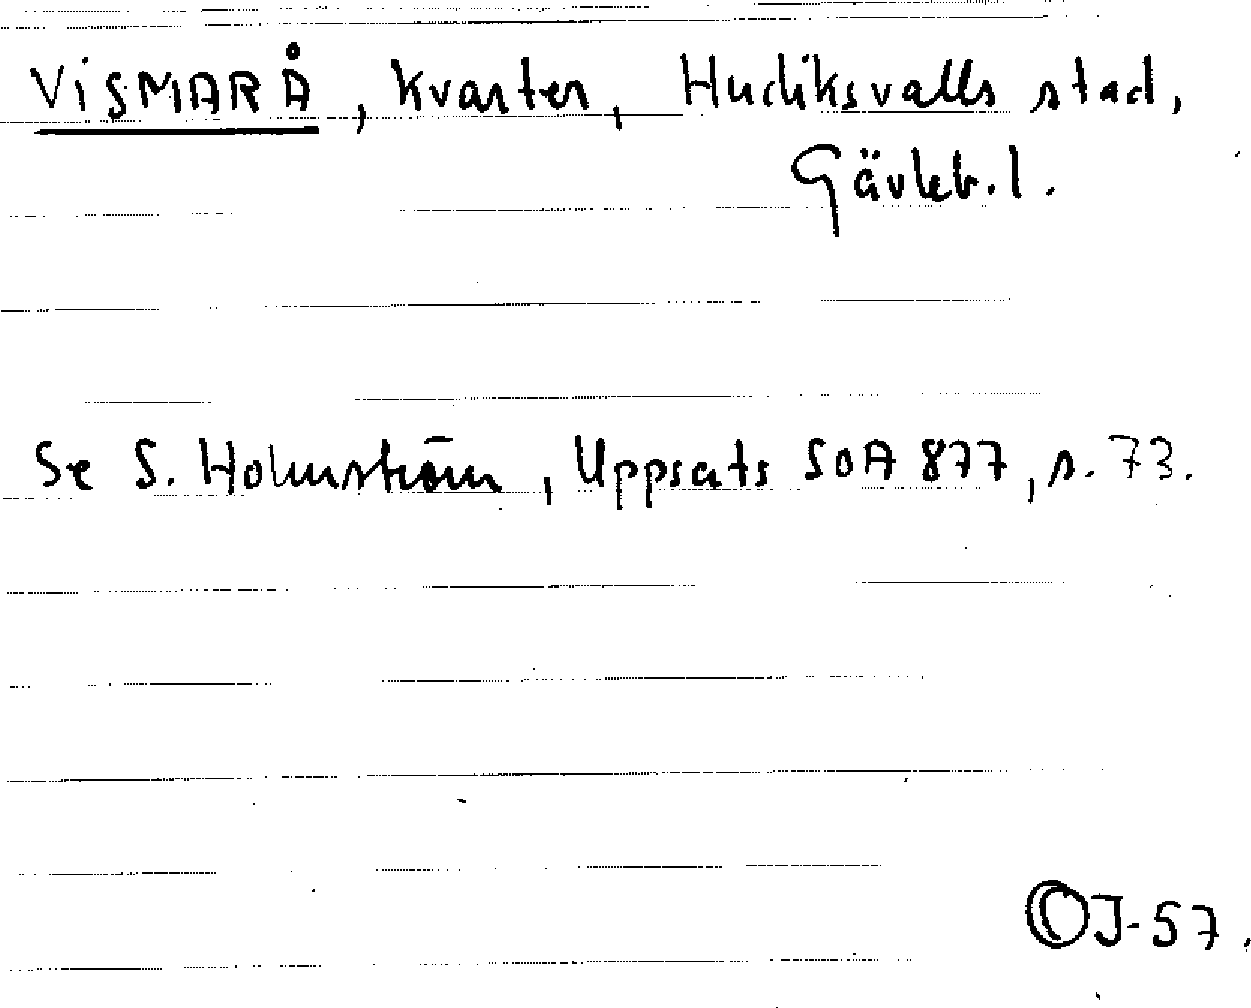 VISMARÅ, kvarter, Hudiksvalls stad,
Gävleb. l.
Se S. Holmström, Uppsats SOA 877, s. 73.
OJ-57.